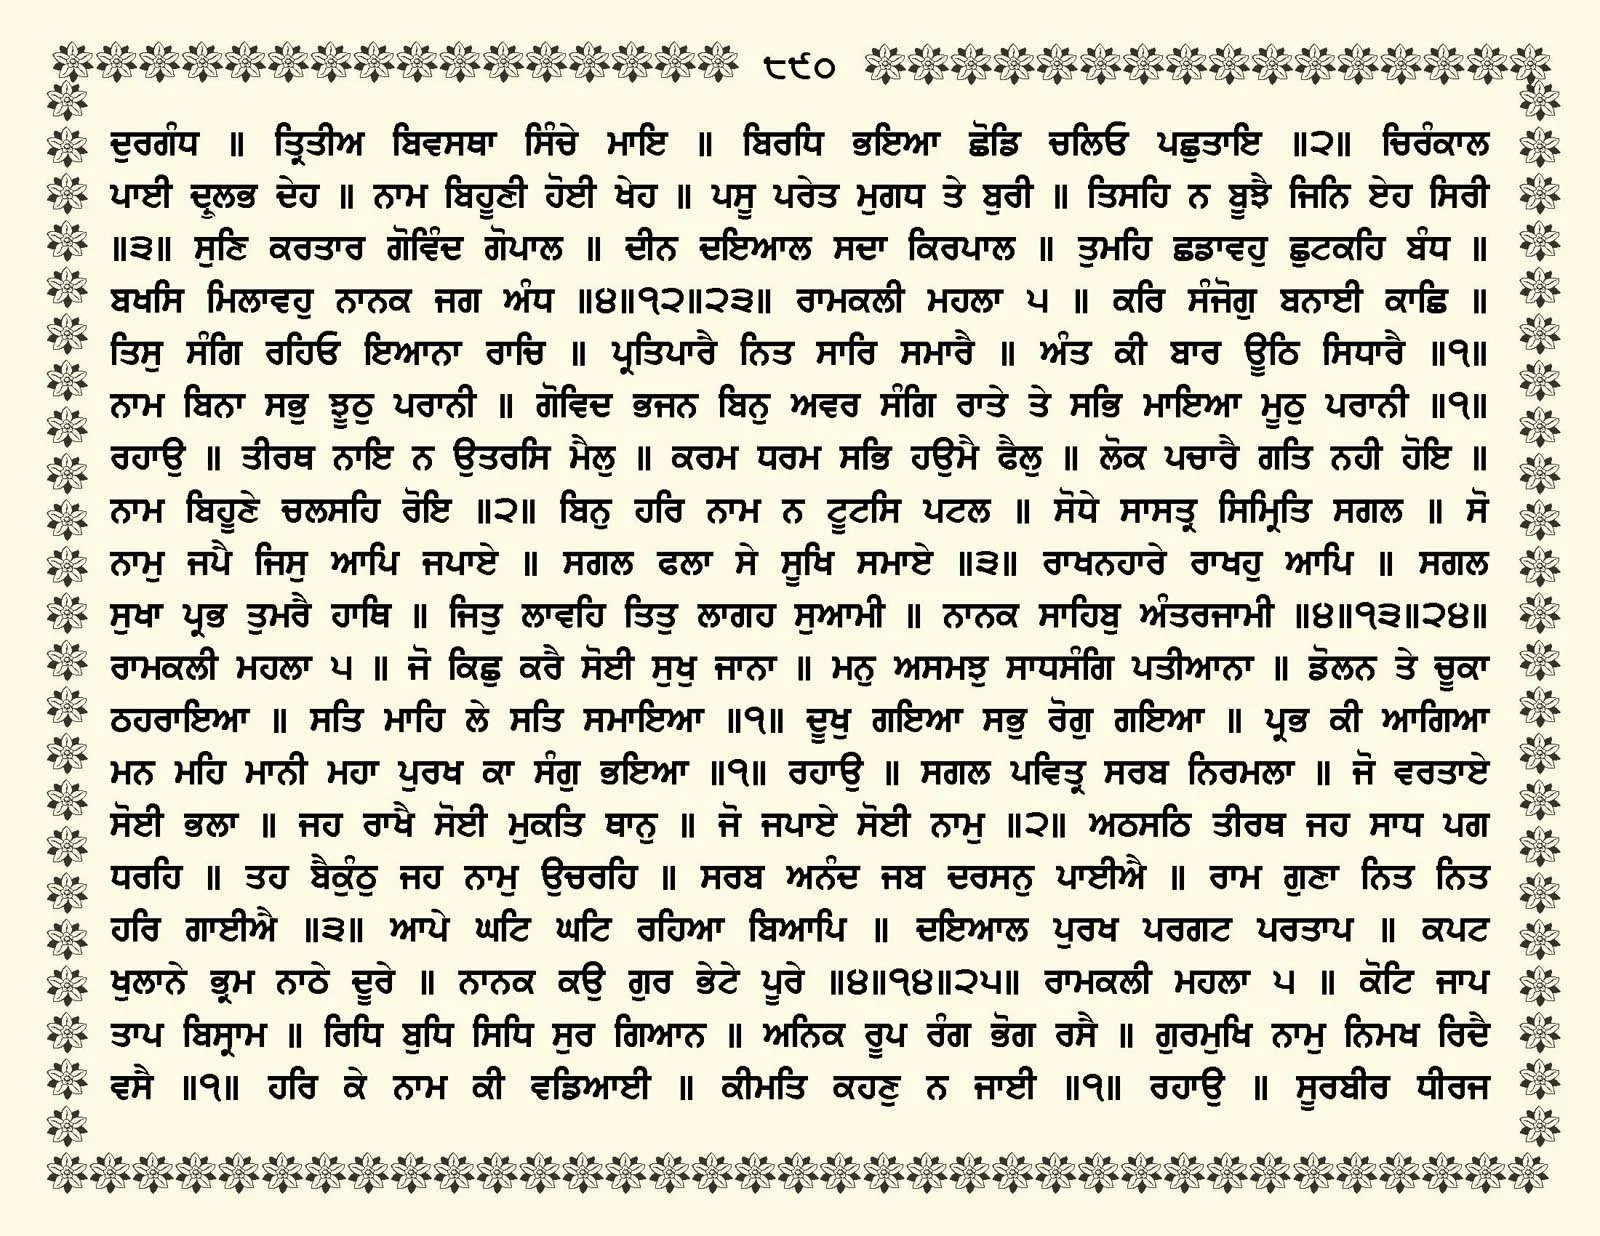 ੮੯੦
ਦੁਰਗੰਧ ॥ ਤ੍ਰਿਤੀਅ ਬਿਵਸਥਾ ਸਿੰਚੇ ਮਾਇ ॥ ਬਿਰਧਿ ਭਇਆ ਛੋਡਿ ਚਲਿਓ ਪਛੁਤਾਇ ॥੨॥ ਚਿਰੰਕਾਲ
ਪਾਈ ਦ੍ਰੁਲਭ ਦੇਹ ॥ ਨਾਮ ਬਿਹੂਣੀ ਹੋਈ ਖੇਹ ॥ ਪਸੂ ਪਰੇਤ ਮੁਗਧ ਤੇ ਬੁਰੀ ॥ ਤਿਸਹਿ ਨ ਬੂਝੈ ਜਿਨਿ ਏਹ ਸਿਰੀ
॥੩॥ ਸੁਣਿ ਕਰਤਾਰ ਗੋਵਿੰਦ ਗੋਪਾਲ ॥ ਦੀਨ ਦਇਆਲ ਸਦਾ ਕਿਰਪਾਲ ॥ ਤੁਮਹਿ ਛਡਾਵਹੁ ਛੁਟਕਹਿ ਬੰਧ ॥
ਬਖਸਿ ਮਿਲਾਵਹੁ ਨਾਨਕ ਜਗ ਅੰਧ ॥੪॥੧੨॥੨੩॥ ਰਾਮਕਲੀ ਮਹਲਾ ੫ ॥ ਕਰਿ ਸੰਜੋਗੁ ਬਨਾਈ ਕਾਛਿ ॥
ਤਿਸੁ ਸੰਗਿ ਰਹਿਓ ਇਆਨਾ ਰਾਚਿ ॥ ਪ੍ਰਤਿਪਾਰੈ ਨਿਤ ਸਾਰਿ ਸਮਾਰੈ ॥ ਅੰਤ ਕੀ ਬਾਰ ਊਠਿ ਸਿਧਾਰੈ ॥੧॥
ਨਾਮ ਬਿਨਾ ਸਭੁ ਝੂਠੁ ਪਰਾਨੀ ॥ ਗੋਵਿਦ ਭਜਨ ਬਿਨੁ ਅਵਰ ਸੰਗਿ ਰਾਤੇ ਤੇ ਸਭਿ ਮਾਇਆ ਮੂਠੁ ਪਰਾਨੀ ॥੧॥
ਰਹਾਉ ॥ ਤੀਰਥ ਨਾਇ ਨ ਉਤਰਸਿ ਮੈਲੁ ॥ ਕਰਮ ਧਰਮ ਸਭਿ ਹਉਮੈ ਫੈਲੁ ॥ ਲੋਕ ਪਚਾਰੈ ਗਤਿ ਨਹੀ ਹੋਇ ॥
ਨਾਮ ਬਿਹੂਣੇ ਚਲਸਹਿ ਰੋਇ ॥੨॥ ਬਿਨੁ ਹਰਿ ਨਾਮ ਨ ਟੂਟਸਿ ਪਟਲ ॥ ਸੋਧੇ ਸਾਸਤ੍ਰ ਸਿਮ੍ਰਿਤਿ ਸਗਲ ॥ ਸੋ
ਨਾਮੁ ਜਪੈ ਜਿਸੁ ਆਪਿ ਜਪਾਏ ॥ ਸਗਲ ਫਲਾ ਸੇ ਸੂਖਿ ਸਮਾਏ ॥੩॥ ਰਾਖਨਹਾਰੇ ਰਾਖਹੁ ਆਪਿ ॥ ਸਗਲ
ਸੁਖਾ ਪ੍ਰਭ ਤੁਮਰੈ ਹਾਥਿ ॥ ਜਿਤੁ ਲਾਵਹਿ ਤਿਤੁ ਲਾਗਹ ਸੁਆਮੀ ॥ ਨਾਨਕ ਸਾਹਿਬੁ ਅੰਤਰਜਾਮੀ ॥੪॥੧੩॥੨੪॥
ਰਾਮਕਲੀ ਮਹਲਾ ੫ ॥ ਜੋ ਕਿਛੁ ਕਰੈ ਸੋਈ ਸੁਖੁ ਜਾਨਾ ॥ ਮਨੁ ਅਸਮਝੁ ਸਾਧਸੰਗਿ ਪਤੀਆਨਾ ॥ ਡੋਲਨ ਤੇ ਚੂਕਾ
ਠਹਰਾਇਆ ॥ ਸਤਿ ਮਾਹਿ ਲੇ ਸਤਿ ਸਮਾਇਆ ॥੧॥ ਦੂਖੁ ਗਇਆ ਸਭੁ ਰੋਗੁ ਗਇਆ ॥ ਪ੍ਰਭ ਕੀ ਆਗਿਆ
ਮਨ ਮਹਿ ਮਾਨੀ ਮਹਾ ਪੁਰਖ ਕਾ ਸੰਗੁ ਭਇਆ ॥੧॥ ਰਹਾਉ ॥ ਸਗਲ ਪਵਿਤ੍ਰ ਸਰਬ ਨਿਰਮਲਾ ॥ ਜੋ ਵਰਤਾਏ
ਸੋਈ ਭਲਾ ॥ ਜਹ ਰਾਖੈ ਸੋਈ ਮੁਕਤਿ ਥਾਨੁ ॥ ਜੋ ਜਪਾਏ ਸੋਈ ਨਾਮੁ ॥੨॥ ਅਠਸਠਿ ਤੀਰਥ ਜਹ ਸਾਧ ਪਗ
ਧਰਹਿ ॥ ਤਹ ਬੈਕੁੰਠੁ ਜਹ ਨਾਮੁ ਉਚਰਹਿ ॥ ਸਰਬ ਅਨੰਦ ਜਬ ਦਰਸਨੁ ਪਾਈਐ ॥ ਰਾਮ ਗੁਣਾ ਨਿਤ ਨਿਤ
ਹਰਿ ਗਾਈਐ ॥੩॥ ਆਪੇ ਘਟਿ ਘਟਿ ਰਹਿਆ ਬਿਆਪਿ ॥ ਦਇਆਲ ਪੁਰਖ ਪਰਗਟ ਪਰਤਾਪ ॥ ਕਪਟ
ਖੁਲਾਨੇ ਭ੍ਰਮ ਨਾਠੇ ਦੂਰੇ ॥ ਨਾਨਕ ਕਉ ਗੁਰ ਭੇਟੇ ਪੂਰੇ ॥੪॥੧੪॥੨੫॥ ਰਾਮਕਲੀ ਮਹਲਾ ੫ ॥ ਕੋਟਿ ਜਾਪ
ਤਾਪ ਬਿਸ੍ਰਾਮ ॥ ਰਿਧਿ ਬੁਧਿ ਸਿਧਿ ਸੁਰ ਗਿਆਨ ॥ ਅਨਿਕ ਰੂਪ ਰੰਗ ਭੋਗ ਰਸੈ ॥ ਗੁਰਮੁਖਿ ਨਾਮੁ ਨਿਮਖ ਰਿਦੈ
ਵਸੈ ॥੧॥ ਹਰਿ ਕੇ ਨਾਮ ਕੀ ਵਡਿਆਈ ॥ ਕੀਮਤਿ ਕਹਣੁ ਨ ਜਾਈ ॥੧॥ ਰਹਾਉ ॥ ਸੂਰਬੀਰ ਧੀਰਜ